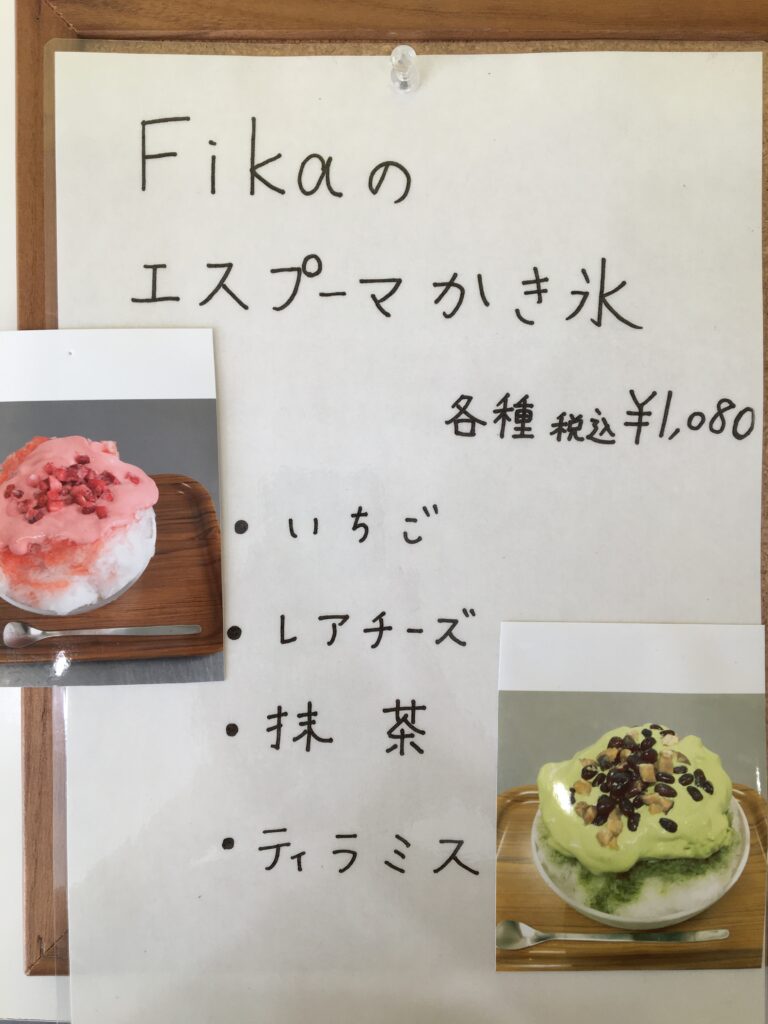 Fikaの
エスプーマかき氷
各種 税込 ¥1,080
• いちご
• レアチーズ
• 抹茶
• ティラミス